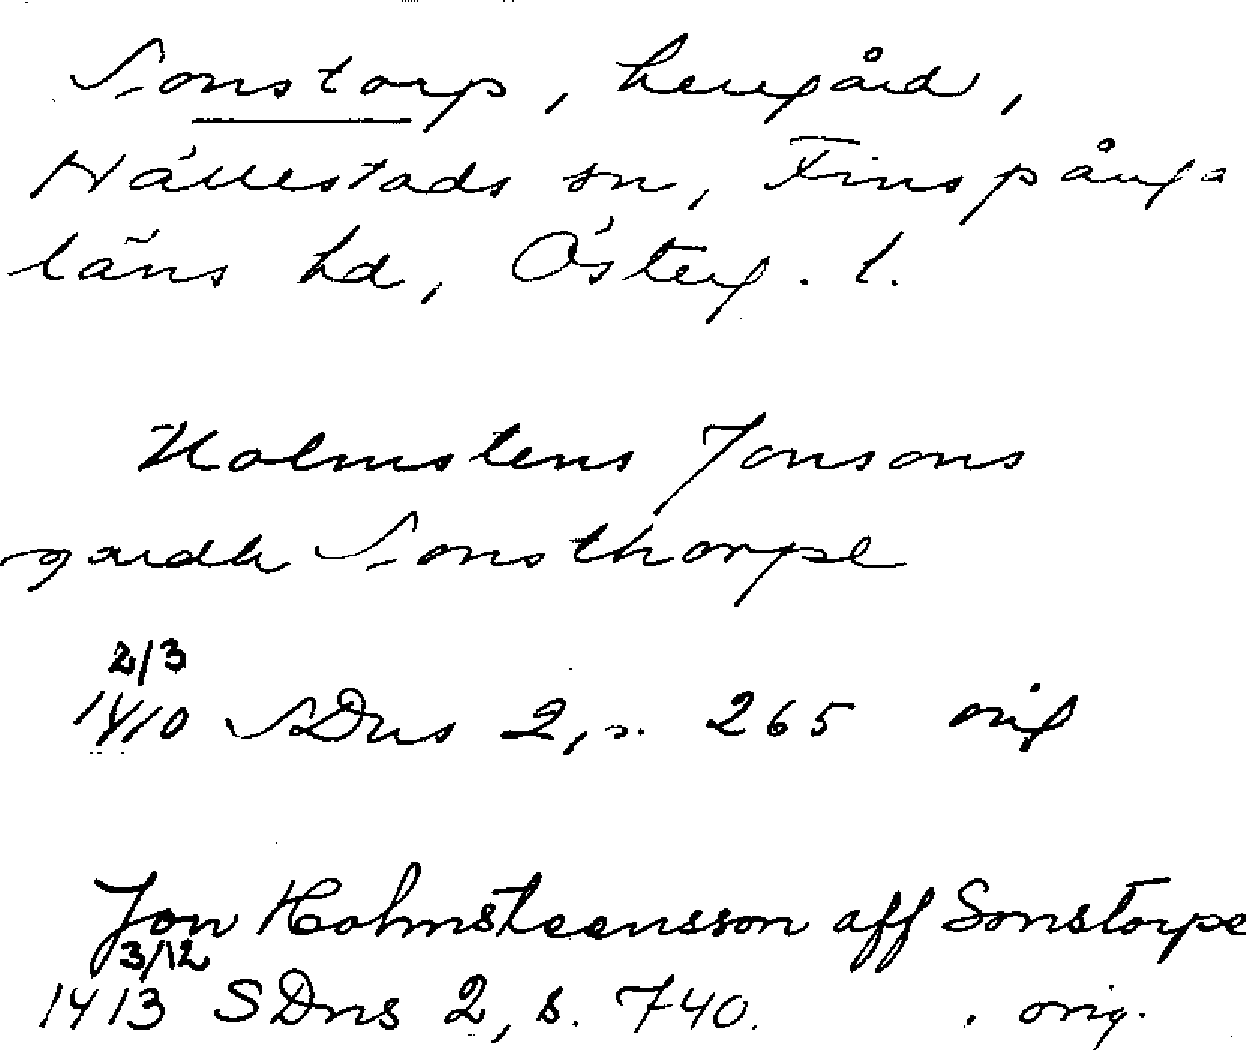 Sonstorp, herrgård,
Hällestads sn, Finspånga
läns hd, Österg. l.
Holmstens Jonsons
gardh Sonsthorpe
2/3
1410 SDns 2, s. 265 orig
Jon Holmsteensson aff Sonstorpe
3/12
1413 SDns 2, s. 740. orig.